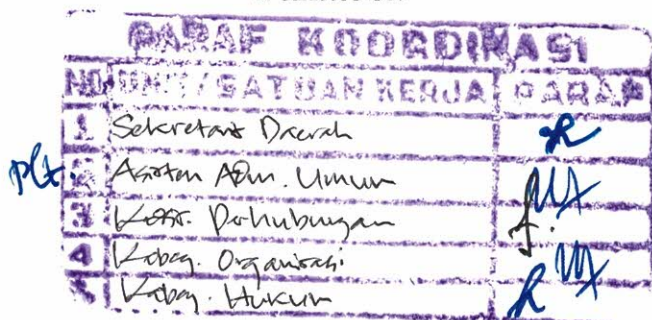 PARAF KOORDINASI
NO UNIT/SATUAN KERJA PARAF
1 Sekretaris Daerah
plt. 2 Asisten Adm. Umum
3 Perhubungan
4 Kabag. Organisasi
5 Kabag. Hukum